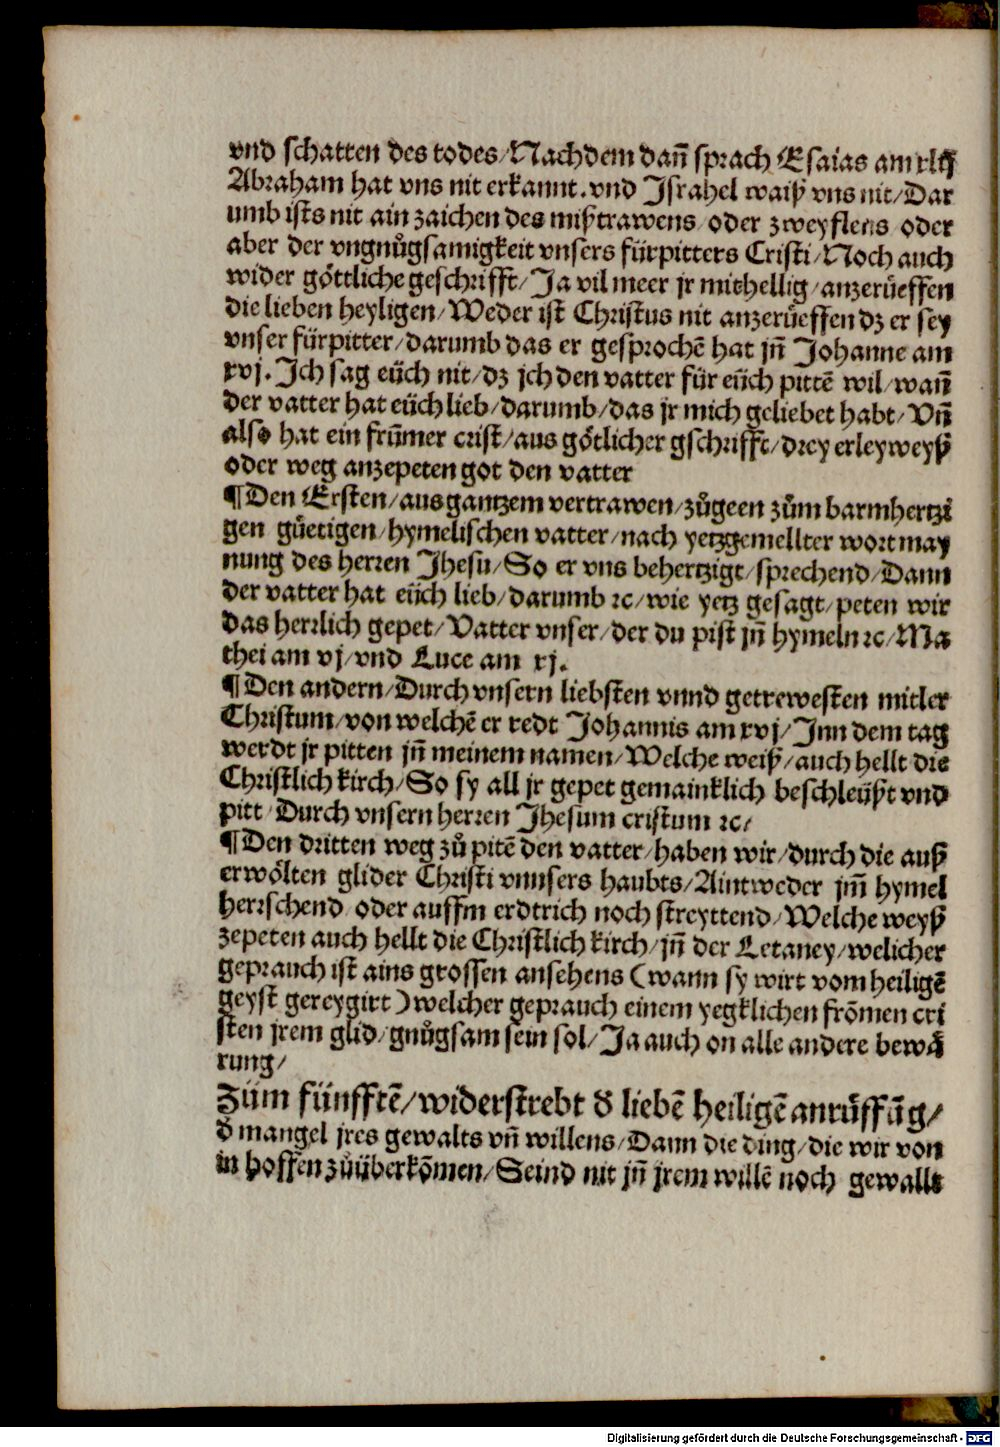 vnd schatten des todes/Nachdem dañ sprach Esaias am
Abraham hat vns nit erkannt.vnd Jsrahel waiß vns nit/Dar
umb ists nit ain zaichen des mißtrawens/oder zweyflens/oder
aber der vngnůgsamigkeit vnsers fürpitters Cristi/Noch auch
wider göttliche geschrifft/Ja vil meer jr mithellig/anzerůeffen
die lieben heyligen/Weder ist Christus nit anzerůeffen dz er sey
vnser fürpitter/darumb das er gesprochē hat jñ Johanne am
xvj. Ich sag eüch nit/dz jch den vatter für eüch pittē wil/wañ
der vatter hat eüch lieb/darumb/das jr mich geliebet habt/Vñ
also hat ein frūmer crist/aus götlicher gschrifft/drey erley weyß
oder weg anzepeten got den vatter
¶Den Ersten/aus gantzem vertrawen/zůgeen zům barmhertzi
gen gůetigen/hymelischen vatter/nach yetzgemellter wort may
nung des herren Jhesu/So er vns behertzigt/sprechend/Dann
der vatter hat eüch lieb/darumb ꝛc/wie yetz gesagt/peten wir
das herrlich gepet/Vatter vnser/der du pist jñ hymeln ꝛc/Ma
thei am vj/vnd Luce am xj.
¶Den andern/Durch vnsern liebsten vnnd getrewesten mitler
Christum/von welchē er redt Johannis am xvj/Inn dem tag
werdt jr pitten jñ meinem namen/Welche weiß/auch hellt die
Christlich kirch/So sy all jr gepet gemainklich beschleüßt vnd
pitt/Durch vnsern herren Jhesum cristum ꝛc/
¶Den dritten weg zů pitē den vatter/haben wir/durch die auß
erwölten glider Christi vnnsers haubts/Aintweder jm̄ hymel
herrschend/oder auffm erdtrich noch streyttend/Welche weyß
zepeten auch hellt die Christlich kirch/jñ der Letaney/welicher
geprauch ist ains grossen ansehens (wann sy wirt vom heiligē
geyst gereygirt) welcher geprauch einem yegklichen frōmen cri
sten jrem glid/gnůgsam sein sol/Ja auch on alle andere bewä
rung/
Züm fünfftē/widerstrebt d̕ liebē heiligē anrůffūg/
d̕ mangel jres gewalts vñ willens/Dann die ding/die wir von
in hoffen zůüberkōmen/Seind nit jñ jrem willē noch gewallt
Digitalisierung gefördert durch die Deutsche Forschungsgemeinschaft - DFG